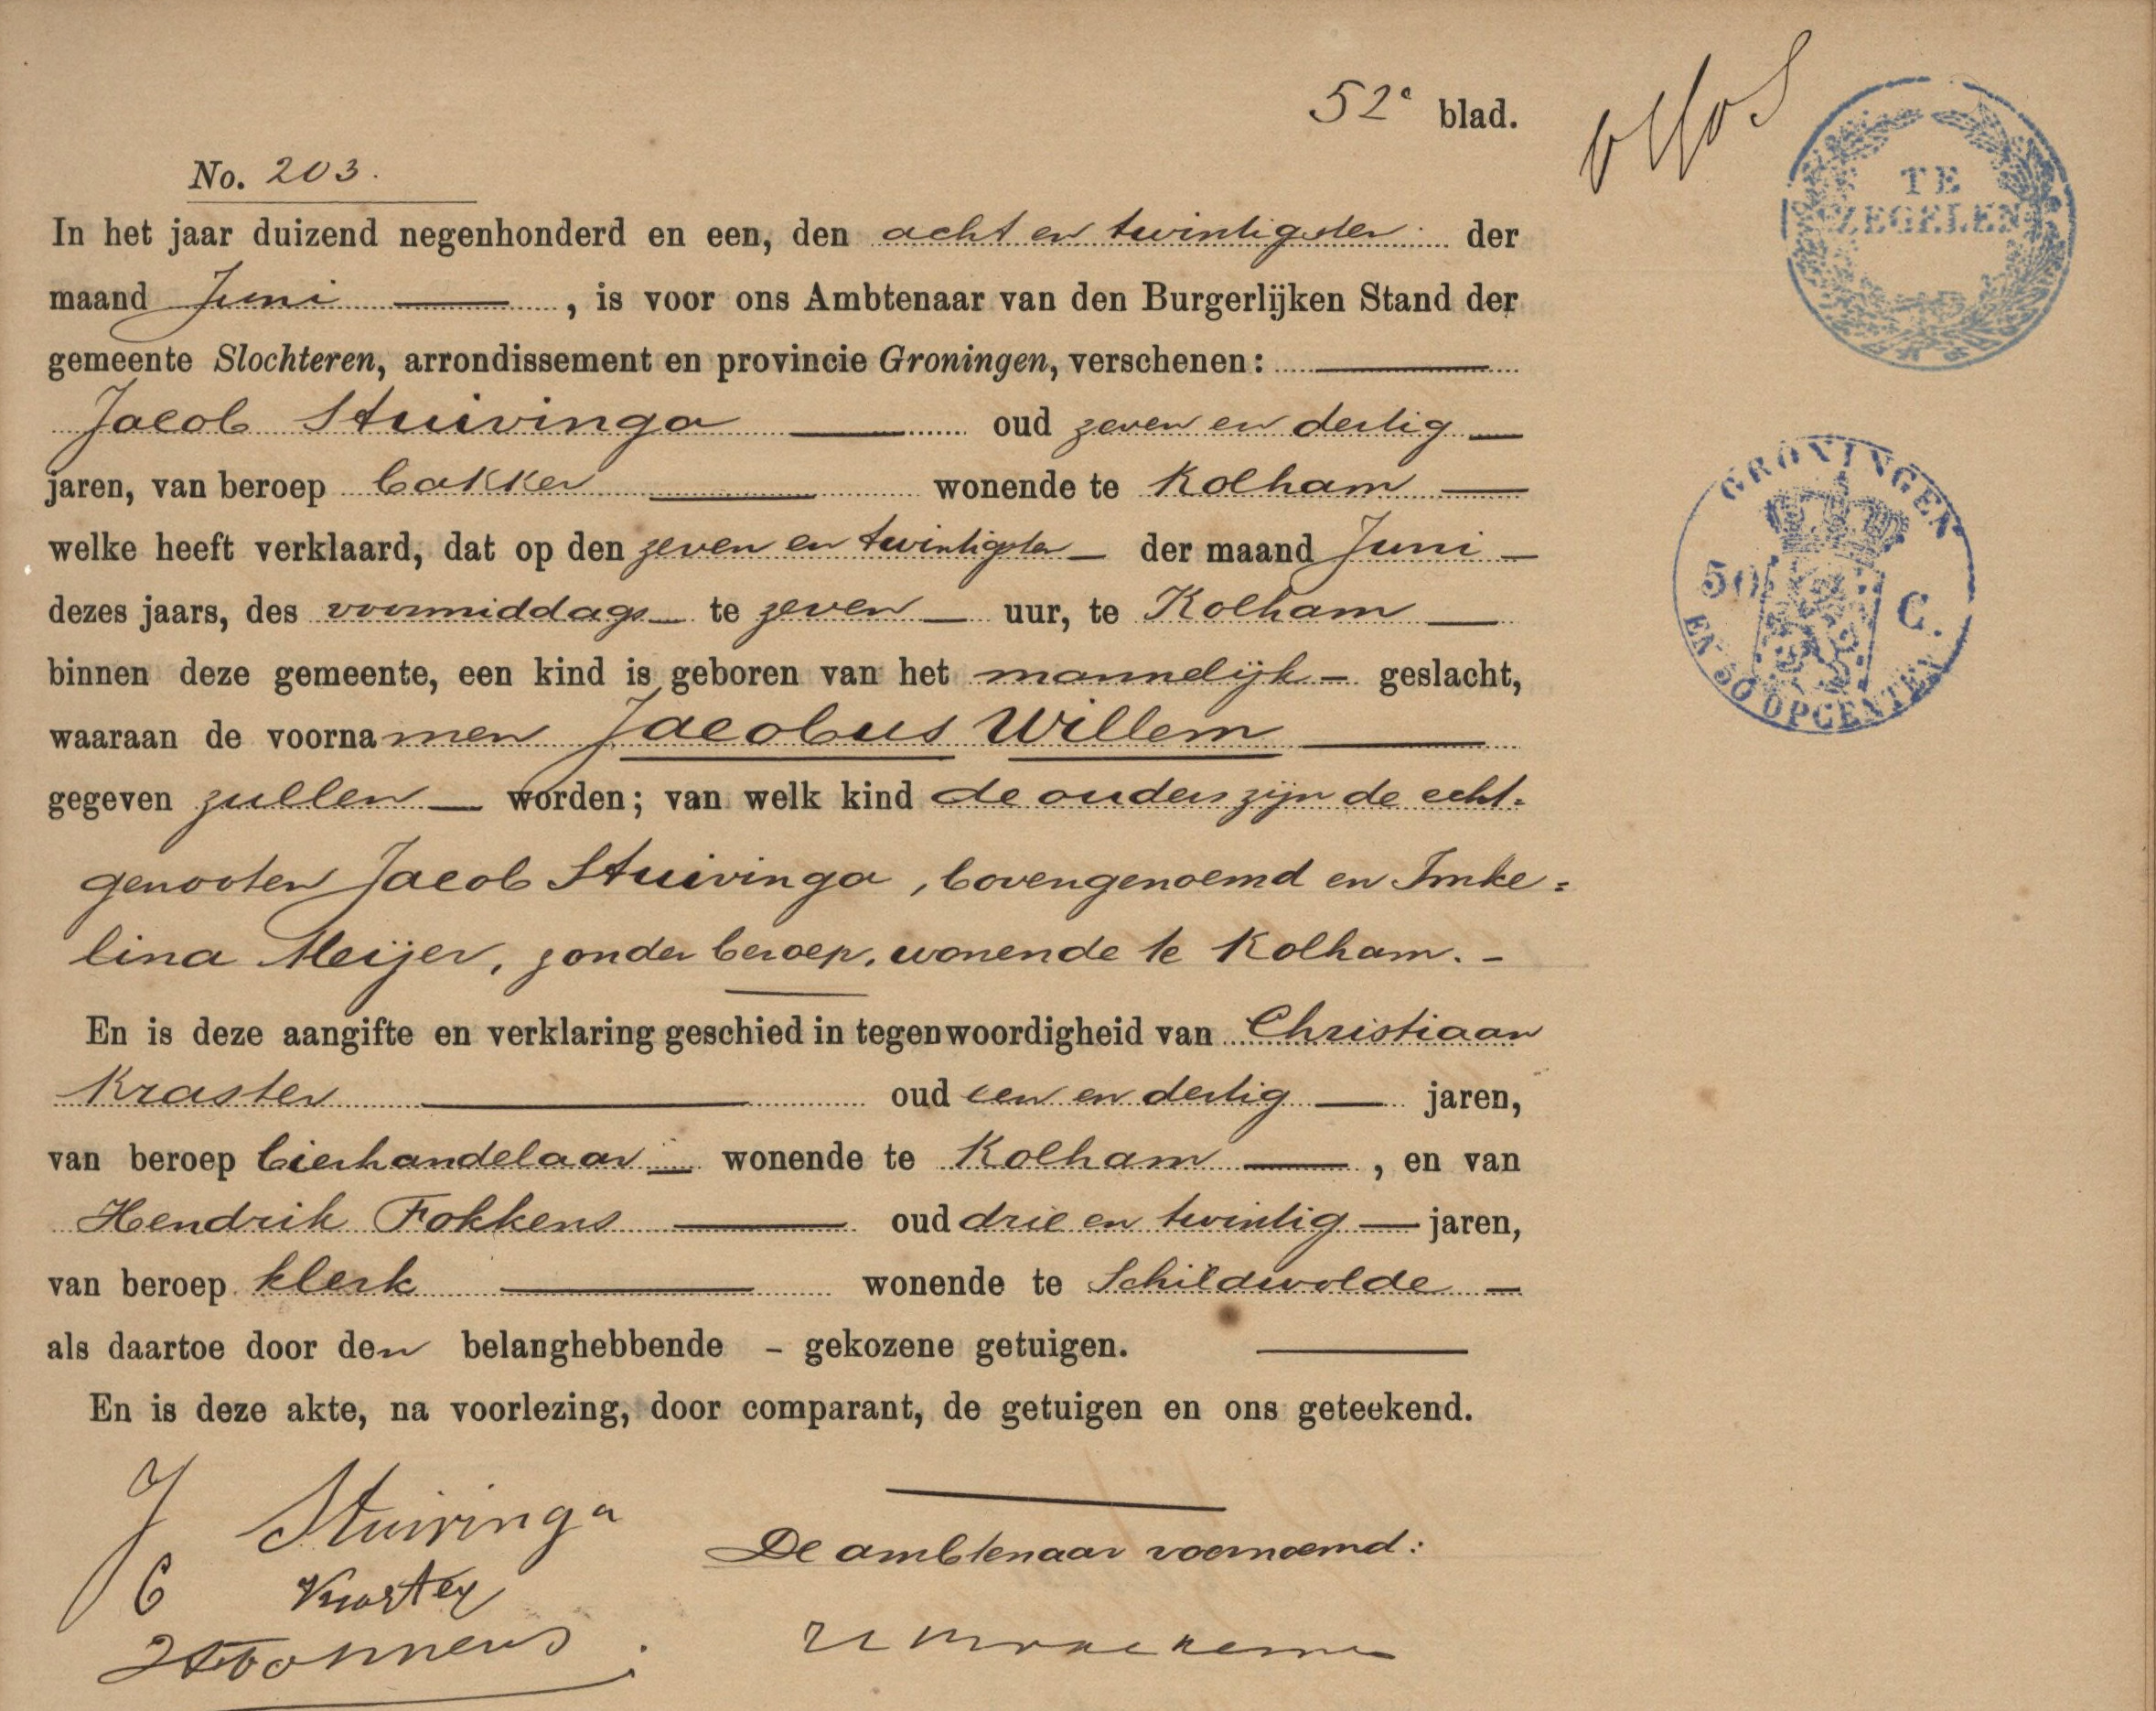 52e blad.
No. 203.
In het jaar duizend negenhonderd en een, den acht en twintigsten der
maand Juni, is voor ons Ambtenaar van den Burgerlijken Stand der
gemeente Slochteren, arrondissement en provincie Groningen, verschenen:
Jacob Stuivinga oud zeven en dertig
jaren, van beroep bakker wonende te Kolham
welke heeft verklaard, dat op den zeven en twintigsten der maand Juni
dezes jaars, des voormiddags te zeven uur, te Kolham
binnen deze gemeente, een kind is geboren van het mannelijk geslacht,
waaraan de voornamen Jacobus Willem
gegeven zullen worden; van welk kind de ouders zijn de echt=
genooten Jacob Stuivinga, bovengenoemd en Imke=
lina Meijer, zonder beroep, wonende te Kolham. -
En is deze aangifte en verklaring geschied in tegenwoordigheid van Christiaan
Kraster oud een en dertig jaren,
van beroep bierhandelaar wonende te Kolham, en van
Hendrik Fokkens oud drie en twintig jaren,
van beroep klerk wonende te Schildwolde
als daartoe door den belanghebbende - gekozene getuigen.
En is deze akte, na voorlezing, door comparant, de getuigen en ons geteekend.
J Stuivinga
C Kraster
De ambtenaar voornoemd:
HFokkens
TE
ZEGELEN
GRONINGEN
50 C.
EN 50 OPCENTEN